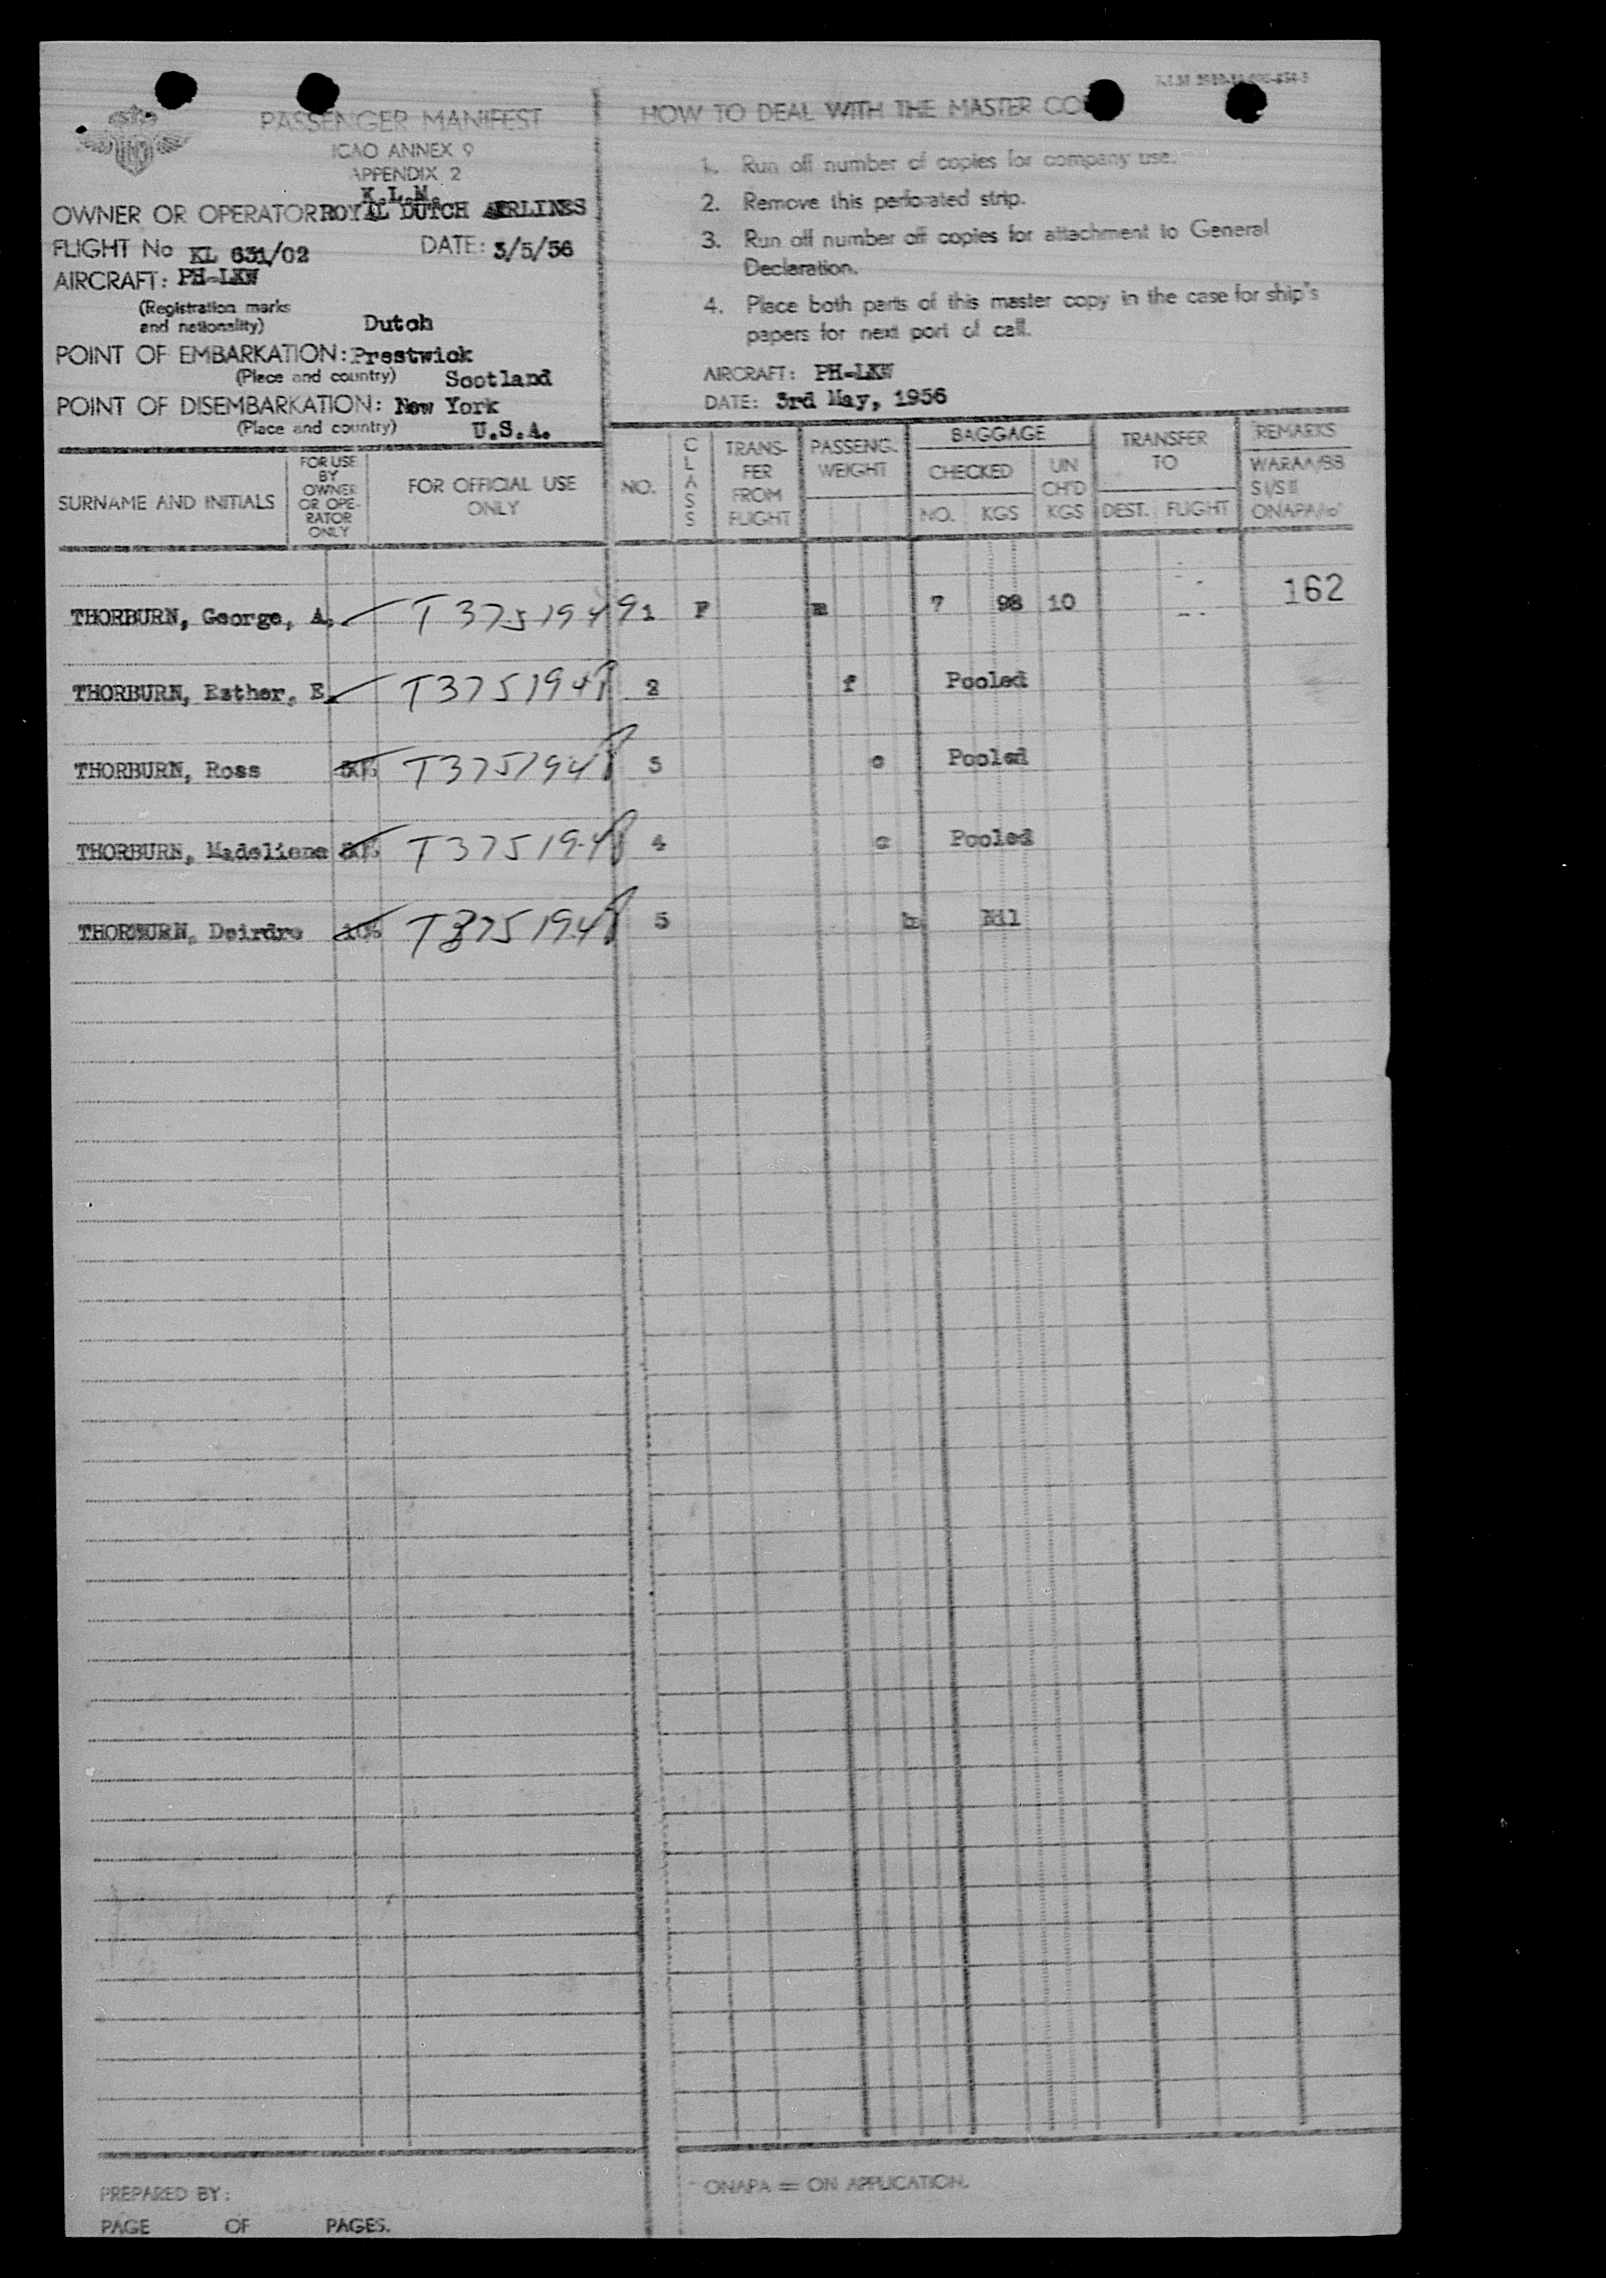 PASSENGER MANIFEST
ICAO ANNEX 9
APPENDIX 2
K.L.M.
OWNER OR OPERATOR ROYAL DUTCH AIRLINES
FLIGHT No KL 631/02 DATE: 3/5/56
AIRCRAFT: PH-LKW
(Registration marks
and nationality) Dutch
POINT OF EMBARKATION: Prestwick
(Place and country) Scotland
POINT OF DISEMBARKATION: New York
(Place and country) U.S.A.
HOW TO DEAL WITH THE MASTER CO
1. Run off number of copies for company use.
2. Remove this perforated strip.
3. Run off number off copies for attachment to General
Declaration.
4. Place both parts of this master copy in the case for ship's
papers for next port of call.
AIRCRAFT: PH-LKW
DATE: 3rd May, 1956
SURNAME AND INITIALS
FOR USE
BY
OWNER
OR OPE-
RATOR
ONLY
FOR OFFICIAL USE
ONLY
NO.
CLASS
TRANS-
FER
FROM
FLIGHT
PASSENG.
WEIGHT
BAGGAGE
CHECKED
NO. KGS
UN
CH'D
KGS
TRANSFER
TO
DEST. FLIGHT
REMARKS
S I/S II
THORBURN, George, A. T3751949 1 F m 7 98 10 162
THORBURN, Esther, E. T375194 2 f Pooled
THORBURN, Ross T375194 3 c Pooled
THORBURN, Madeliene T375194 4 c Pooled
THORBURN, Deirdre 10% T375194 5 b Nil
PREPARED BY:
PAGE OF PAGES.
ONAPA = ON APPLICATION.